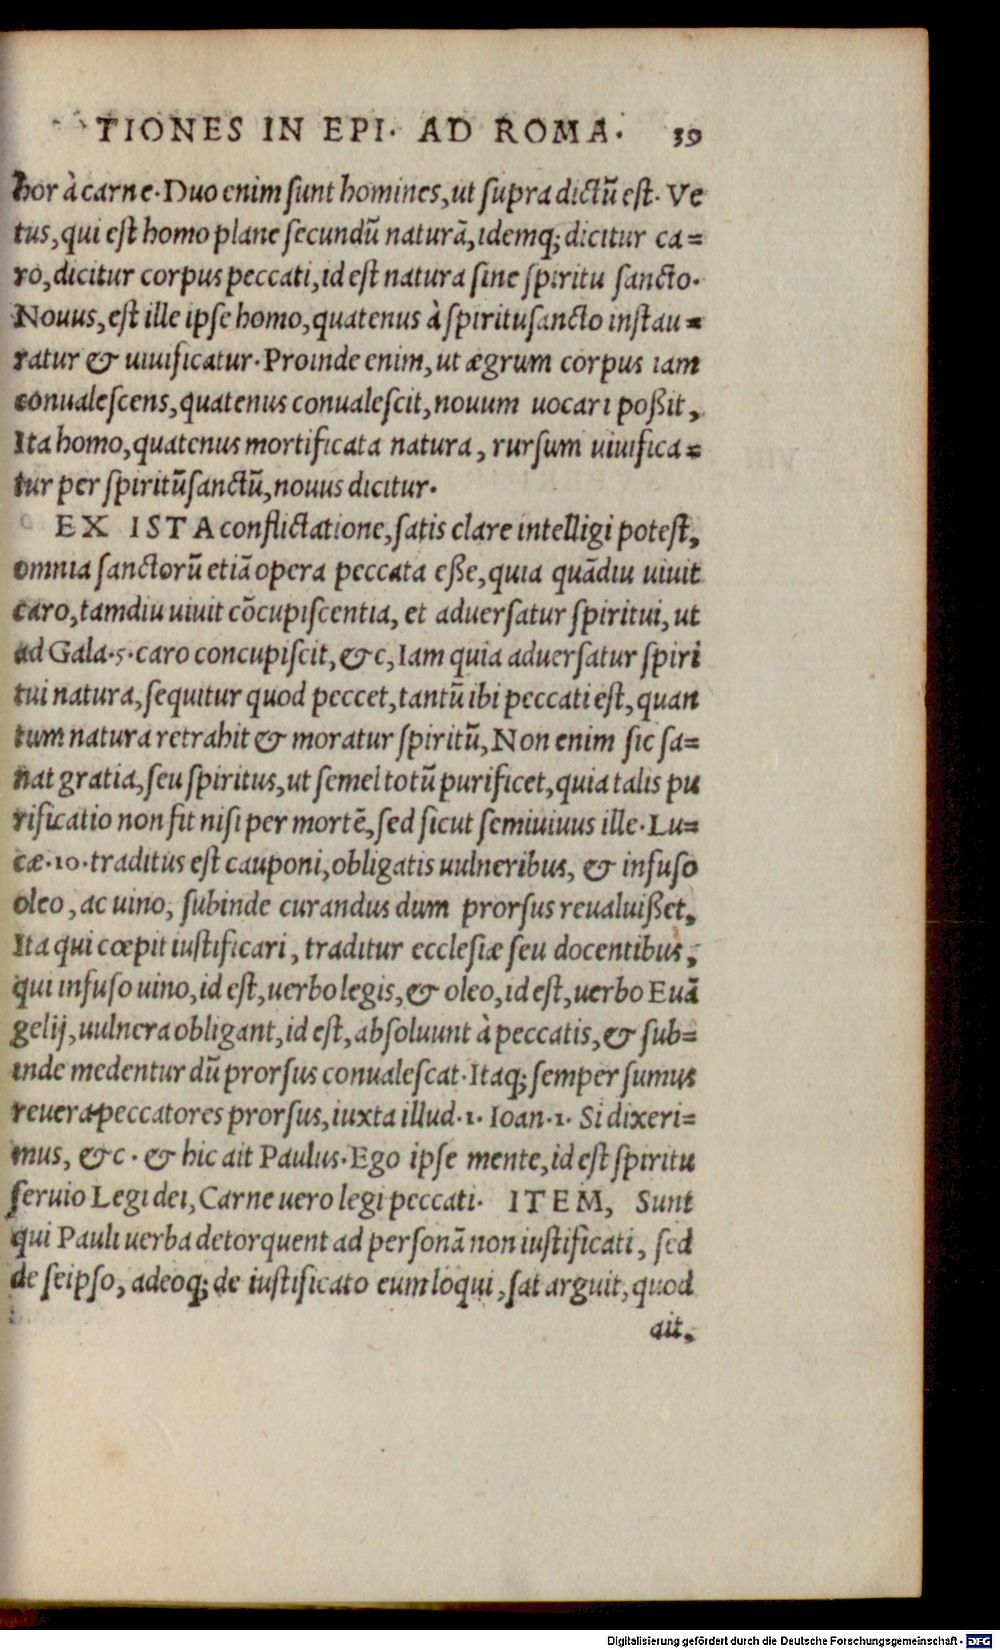 TIONES IN EPI. AD ROMA. 39
hor à carne. Duo enim sunt homines, ut supra dictũ est. Ve
tus, qui est homo plane secundũ naturã, idemq; dicitur ca=
ro, dicitur corpus peccati, id est natura sine spiritu sancto.
Nouus, est ille ipse homo, quatenus à spiritusancto instau=
ratur & uiuificatur. Proinde enim, ut ægrum corpus iam
conualescens, quatenus conualescit, nouum uocari poßit,
Ita homo, quatenus mortificata natura, rursum uiuifica=
tur per spiritũsanctũ, nouus dicitur.
EX ISTA conflictatione, satis clare intelligi potest,
omnia sanctorũ etiã opera peccata eße, quia quãdiu uiuit
caro, tamdiu uiuit cõcupiscentia, et aduersatur spiritui, ut
ad Gala. 5. caro concupiscit, &c, Iam quia aduersatur spiri
tui natura, sequitur quod peccet, tantũ ibi peccati est, quan
tum natura retrahit & moratur spiritũ, Non enim sic sa=
nat gratia, seu spiritus, ut semel totũ purificet, quia talis pu
rificatio non fit nisi per mortẽ, sed sicut semiuiuus ille. Lu=
cæ. 10. traditus est cauponi, obligatis uulneribus, & infuso
oleo, ac uino, subinde curandus dum prorsus reualuißet,
Ita qui cœpit iustificari, traditur ecclesiæ seu docentibus,
qui infuso uino, id est, uerbo legis, & oleo, id est, uerbo Euã
gelij, uulnera obligant, id est, absoluunt à peccatis, & sub=
inde medentur dũ prorsus conualescat. Itaq; semper sumus
reuera peccatores prorsus, iuxta illud. 1. Ioan. 1. Si dixeri=
mus, &c. & hic ait Paulus. Ego ipse mente, id est spiritu
seruio Legi dei, Carne uero legi peccati. ITEM, Sunt
qui Pauli uerba detorquent ad personã non iustificati, sed
de seipso, adeoq; de iustificato eum loqui, sat arguit, quod
ait,
Digitalisierung gefördert durch die Deutsche Forschungsgemeinschaft - DFG